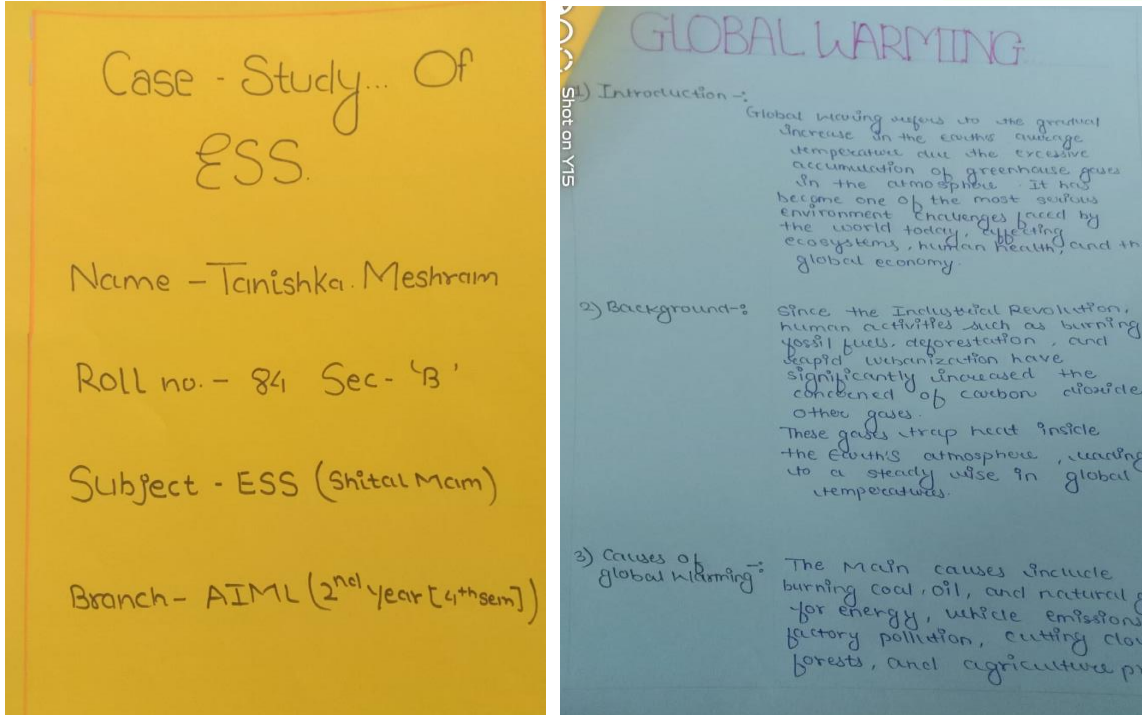 Case - Study... Of
ESS.
Name - Tanishka. Meshram
Roll no. - 84 Sec - 'B'
Subject - ESS (Shital Mam)
Branch - AIML (2nd year [4th sem])
GLOBAL WARMING
1) Introduction -:
Global waring refers to the gradual
increase in the earth's average
temperature due the excessive
accumulation of greenhouse gases
in the atmosphere. It has
become one of the most serious
environment challenges faced by
the world today, affecting
ecosystems, human health, and th
global economy.
2) Background -:
Since the Industrial Revolution,
human activities such as burning
fossil fuels, deforestation, and
rapid urbanization have
significantly increased the
of carbon dioxide
other gases.
These gases trap heat inside
the Earth's atmosphere, leading
to a steady rise in global
temperatures.
3) Causes of
global warming -:
The Main causes include
burning coal, oil, and natural g
for energy, vehicle emissions
factory pollution, cutting dow
forests, and agriculture pr
Shot on Y15